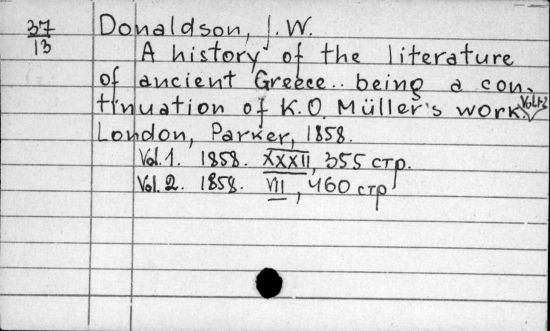 37
13
Donaldson, J. W.
A history of the literature
of ancient Greece.. being a con-
tinuation of K. O. Müller's work. Vol. 1-2
London, Parker, 1858.
Vol. 1. 1858. XXXII, 355 стр.
Vol. 2. 1858. VII, 460 стр